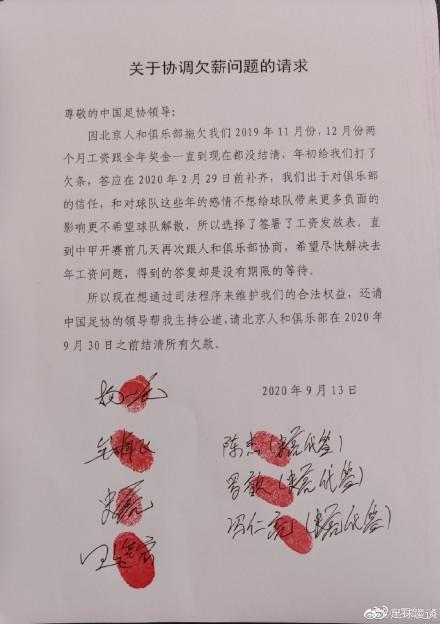 关于协调欠薪问题的请求
尊敬的中国足协领导:
因北京人和俱乐部拖欠我们2019年11月份,12月份两
个月工资跟全年奖金一直到现在都没结清,年初给我们打了
欠条,答应在2020年2月29日前补齐,我们出于对俱乐部
的信任,和对球队这些年的感情不想给球队带来更多负面的
影响更不希望球队解散,所以选择了签署了工资发放表。直
到中甲开赛前几天再次跟人和俱乐部协商,希望尽快解决去
年工资问题,得到的答复却是没有期限的等待。
所以现在想通过司法程序来维护我们的合法权益,还请
中国足协的领导帮我主持公道,请北京人和俱乐部在2020年
9月30日之前结清所有欠款。
2020年9月13日
陈杰(史亮代签)
曾毅(史亮代签)
史亮
冯仁亮(史亮代签)
足球漫谈